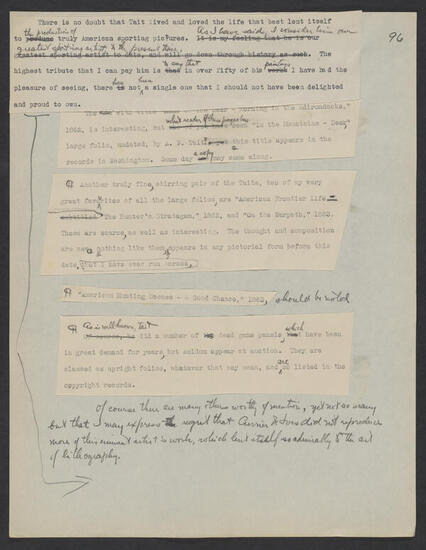 96
There is no doubt that Tait lived and loved the life that best lent itself
the production of As I have said, I consider him our
to produce truly American sporting pictures. It is my feeling that he is our
greatest sporting artist to the present time.
greatest sporting artist to date, and will go down through history as such. The
to say that paintings
highest tribute that I can pay him is that in over fifty of his works I have had the
has been
pleasure of seeing, there is not a single one that I should not have been delighted
and proud to own.
Morning in the Adirondacks,"
what reader of these pages has
1862, is interesting, but seen "In the Mountains - Deer,"
large folio, undated, by A. F. Tait, this title appears in the
a copy
records in Washington. Some day may come along.
Another truly fine, stirring pair of the Taits, two of my very
great favorites of all the large folios, are "American Frontier Life
The Hunter's Stratagem," 1862, and "On the Warpath," 1863.
These are scarce, as well as interesting. The thought and composition
are nothing like them appears in any pictorial form before this
date, that I have ever run across.
"American Hunting Scenes - A Good Chance," 1863, should be noted
As is well known, Tait
Of course, he did a number of dead game panels, which have been
in great demand for years, but seldom appear at auction. They are
classed as upright folios, whatever that may mean, and are so listed in the
copyright records.
Of course there are many others worthy of mention, yet not so many
but that I may express the regret that Currier & Ives did not reproduce
more of this eminent artist's work, which lent itself so admirably to the art
of lithography.